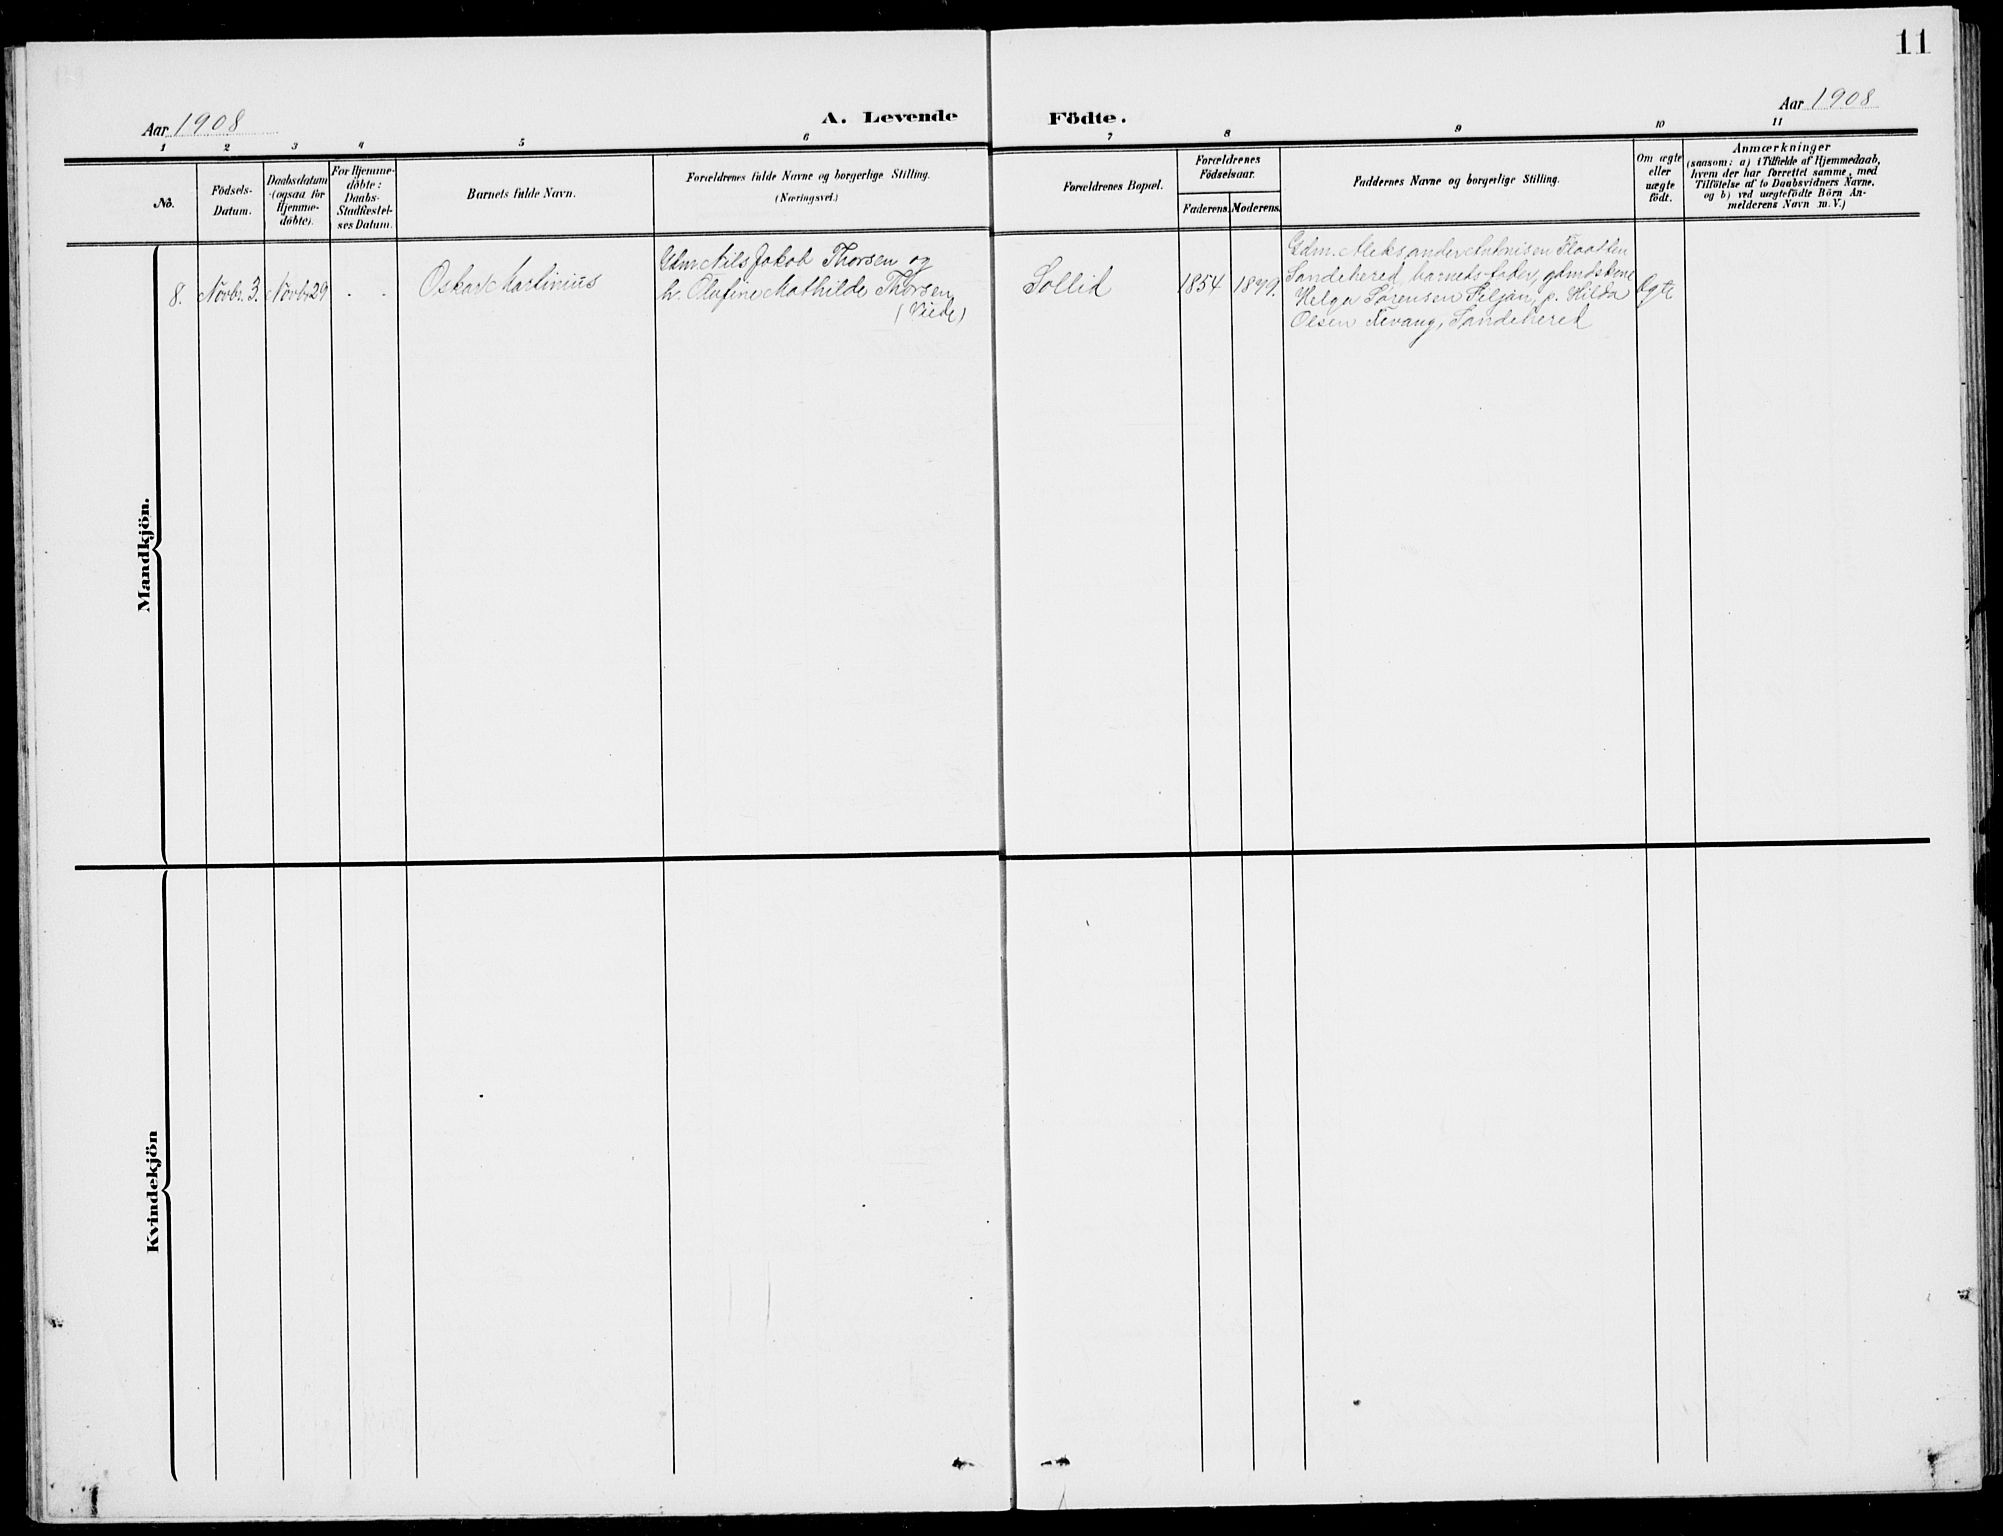 11
Aar 1908
A. Levende Födte.
Aar 1908
1 2 3 4 5 6 7 8 9 10 11
No.
Födsels-
Datum.
Daabsdatum
(ogsaa for
Hjemme-
döbte).
For Hjemme-
döbte:
Daabs-
Stadfæstel-
ses Datum.
Barnets fulde Navn.
Forældrenes fulde Navne og borgerlige Stilling.
(Næringsvei.)
Forældrenes Bopæl.
Forældrenes
Födselsaar.
Faderens. Moderens.
Faddernes Navne og borgerlige Stilling.
Om ægte
eller
uægte
födt.
Anmærkninger
(saasom: a) i Tilfælde af Hjemmedaab,
hvem der har forrettet samme, med
Tilföielse af to Daabsvidners Navne.
og b) ved uægtefödte Börn An-
melderens Navn m. V.)
Mandkjön.
8.
Novbr. 3.
Novbr 29
. .
Oskar Martinius
Gdm. Nils Jakob Thorsen og
h. Olufine Mathilde Thorsen
Sollid
1854
1879.
Gdm. Aleksander Flaatten
Sandehered, barnets fader,
Helga Sørensen p. Hilda
Olsen Nevang, Sandehered
Ægte
Kvindekjön